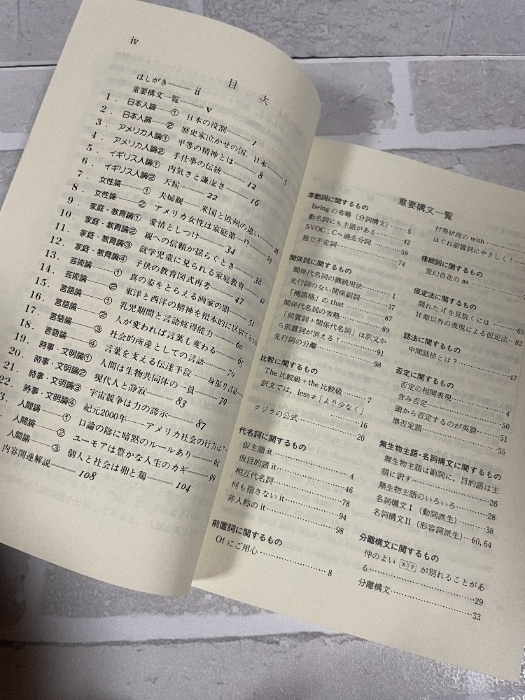 iv
目 次
はしがき ii
重要構文一覧 v
1. 日本人論 ① 日本の役割 1
2. 日本人論 ② 歴史家泣かせの国,日本
3. アメリカ人論① 平等の精神とは 8
4. アメリカ人論② 手仕事の伝統 12
5. イギリス人論① 内気さと謙虚さ 16
6. イギリス人論② 天候 22
7. 女性論 ① 夫婦観――米国と欧州の違い
8. 女性論 ② アメリカ女性は家庭第一
9. 家庭・教育論① 愛情としつけ 34
10. 家庭・教育論② 親への信頼が揺らぐとき
11. 家庭・教育論③ 就学児童に見られる家庭教育
12. 家庭・教育論④ 子供の教育図式再考 47
13. 芸術論 ① 真の姿をとらえる画家の眼
14. 芸術論 ② 東洋と西洋の精神を根本的に
15. 言語論 ① 乳児期間と言語修得能力
16. 言語論 ② 人が変われば言葉も変わる
17. 言語論 ③ 社会的所産としての言語
18. 言語論 ④ 言葉を支える伝達手段
19. 時事・文明論① 人間は生物共同体の一員 79
20. 時事・文明論② 現代人と静寂 83
21. 時事・文明論③ 宇宙競争は力の誇示 87
22. 時事・文明論④ 紀元2000年――アメリカ社会の行方は
人間論 ① 口論の陰に暗黙のルールあり
人間論 ② ユーモアは豊かな人生のカギ 99
人間論 ③ 個人と社会は卵と鶏 104
内容関連解説 108
重要構文一覧
準動詞に関するもの
being の省略(分詞構文) 5
動名詞にも主語がある 42
SVOC,C=過去分詞 59
独立不定詞 74
関係詞に関するもの
関係代名詞の継続用法 1
先行詞のない関係詞 37
「補語格」の that 87
関係代名詞の省略 89
「前置詞+関係代名詞」は訳文から前置詞が消える! 91
先行詞の分離 98
比較に関するもの
The 比較級+the 比較級 7
訳文では,less を「より少なく」 16
クジラの公式 20
代名詞に関するもの
仮主語 it 4
仮目的語 it 46
相互代名詞 78
何も指さない it 94
非人称の it 98
前置詞に関するもの
Of にご用心 8
付帯状況の with
はぐれ前置詞にやさしく!
接続詞に関するもの
変幻自在の as
仮定法に関するもの
隠れた if を見抜くには 65
If 節以外の表現による仮定法 82
話法に関するもの
中間話法とは? 47
否定に関するもの
否定の相関表現 4
含み否定 50
頭から否定するのが英語 51
準否定語 55
無生物主語・名詞構文に関するもの
無生物主語は副詞に,目的語は主語に訳す 26
無生物主語のいろいろ 28
名詞構文Ⅰ(動詞派生) 38
名詞構文Ⅱ(形容詞派生) 60,64
分離構文に関するもの
仲のよい X Y が別れることがある 29
分離構文 33